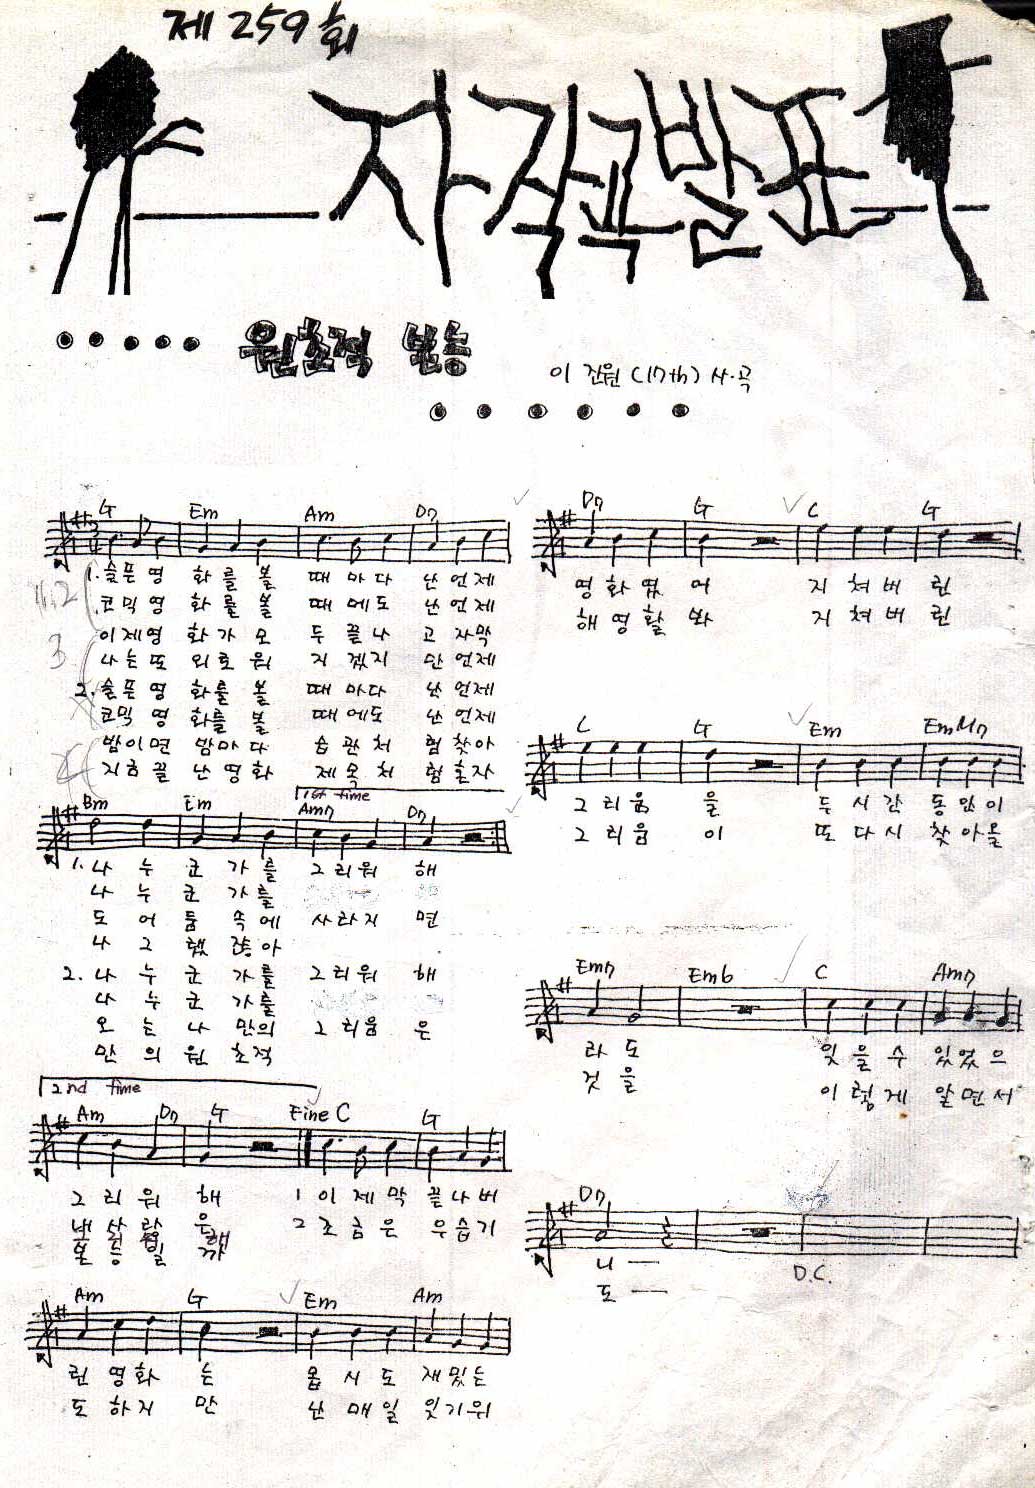 제 259 회
자작곡발표
원초적 본능
이 진원 (17th) 사·곡
G Em Am D7
1. 슬픈 영 화를 볼 때 마다 난 언제
코믹 영 화를 볼 때 에도 난 언제
이제 영 화가 모 두 끝나 고 자막
나는 또 외로 워 지 겠지 만 언제
2. 슬픈 영 화를 볼 때 마다 난 언제
코믹 영 화를 볼 때 에도 난 언제
밤이면 밤마다 습 관처 럼 찾아
지금 끝 난 영화 제 목처 럼 혼자
1st time
Bm Em Am7 D7
1. 나 누 군 가를 그리워 해
나 누 군 가를
도 어 둠 속에 사라지 면
나 그 랬 잖아
2. 나 누 군 가를 그리워 해
나 누 군 가를
오 는 나 만의 그리움 은
만 의 원 초적
2nd time
Am D7 G Fine C G
그 리 워 해 1 이 제 막 끝나버
2 조 금 은 우습기
본 능 일 까
Am G Em Am
린 영화 는 몹 시 도 재밌는
도 하지 만 난 매일 잊기위
D7 G C G
영 화였 어 지 쳐 버 린
해 영활 봐 지 쳐 버 린
C G Em EmM7
그 리 움 을 두 시간 동안이
그 리 움 이 또 다시 찾아올
Em7 Em6 C Am7
라 도 잊 을 수 있었으
것 을 이 렇 게 알면서
D7
니 —
도 —
D.C.